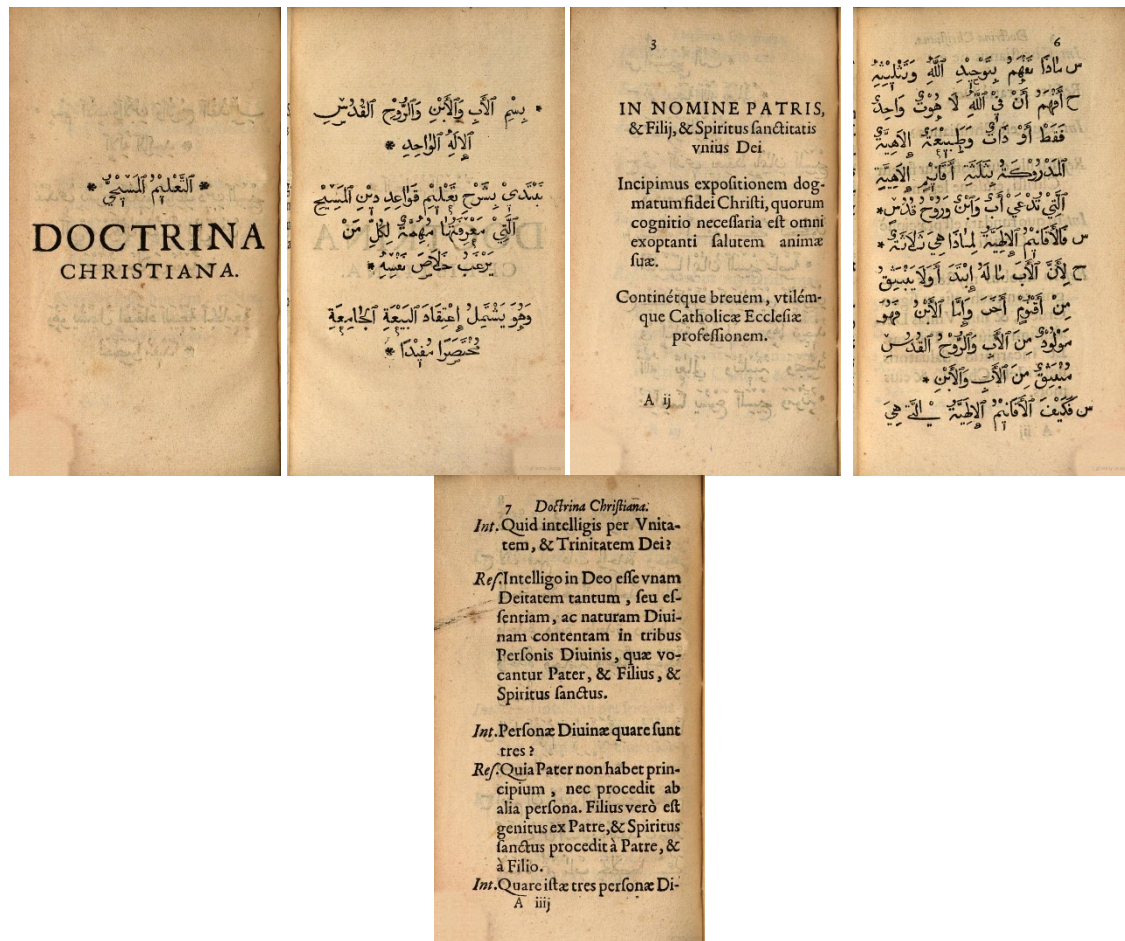 * التَّعْلِيْمُ الْمَسِيْحِيُّ *
DOCTRINA
CHRISTIANA.
* بِسْمِ الْأَبِ وَالْاَبْنِ وَالرُّوْحِ الْقُدُسِ
الْاِلَهِ الْوَاحِدِ *
نَبْتَدِئُ بِشَرْحِ تَعْلِيْمِ قَوَاعِدِ دِيْنِ الْمَسِيْحِ
الَّتِيْ مَعْرِفَتُهَا مُهِمَّةٌ لِكُلِّ مَنْ
يَرْغَبُ خَلَاصَ نَفْسِهِ *
وَهُوَ يَشْتَمِلُ اِعْتِقَادَ الْبَيْعَةِ الْجَامِعَةِ
مُخْتَصَرًا مُفِيْدًا *
3
IN NOMINE PATRIS,
& Filij, & Spiritus ſanctitatis
vnius Dei
Incipimus expoſitionem dog-
matum fidei Chriſti, quorum
cognitio neceſſaria eſt omni
exoptanti ſalutem animæ
ſuæ.
Continétque breuem, vtilém-
que Catholicæ Eccleſiæ
profeſſionem.
A ij
6
س مَاذَا تَفْهَمُ بِتَوْحِيْدِ اللَّهِ وَتَثْلِيْثِهِ
ج أَفْهَمُ أَنَّ فِيْ اللَّهِ لَا هُوْتٌ وَاحِدٌ
فَقَطْ أَوْ ذَاتٌ وَطَبِيْعَةٌ إِلَاهِيَّةٌ
الْمَدْرُوْكَةُ بِثَلَثَةِ أَقَانِيْمٍ إِلَاهِيَّةٍ
الَّتِيْ تُدْعَي أَبٌ وَآبْنٌ وَرُوْحُ قُدُسٍ *
س فَالْأَقَانِيْمُ الْإِلَهِيَّةُ لِمَاذَا هِيَ ثَلَاثَةٌ *
ج لِأَنَّ الْأَبَ مَا لَهُ إِبْتِدَا وَلَا يَنْبَثِقُ
مِنْ أَقْنُوْمٍ أَخَرَ وَإِمَّا الْاَبْنُ فَهُوَ
مَوْلُوْدٌ مِنَ الْأَبِ وَالرُّوْحُ الْقُدُسُ
مُنْبَثِقٌ مِنَ الْأَبِ وَالْاَبْنِ *
س فَكَيْفَ الْأَقَانِيْمُ الْإِلَهِيَّةُ الَّتِيْ هِيَ
7 Doctrina Chriſtiana.
Int. Quid intelligis per Vnita-
tem, & Trinitatem Dei?
Reſ. Intelligo in Deo eſſe vnam
Deitatem tantum, ſeu eſ-
ſentiam, ac naturam Diui-
nam contentam in tribus
Perſonis Diuinis, quæ vo-
cantur Pater, & Filius, &
Spiritus ſanctus.
Int. Perſonæ Diuinæ quare ſunt
tres?
Reſ. Quia Pater non habet prin-
cipium, nec procedit ab
alia perſona. Filius verò eſt
genitus ex Patre, & Spiritus
ſanctus procedit à Patre, &
à Filio.
Int. Quare iſtæ tres perſonæ Di-
A iiij